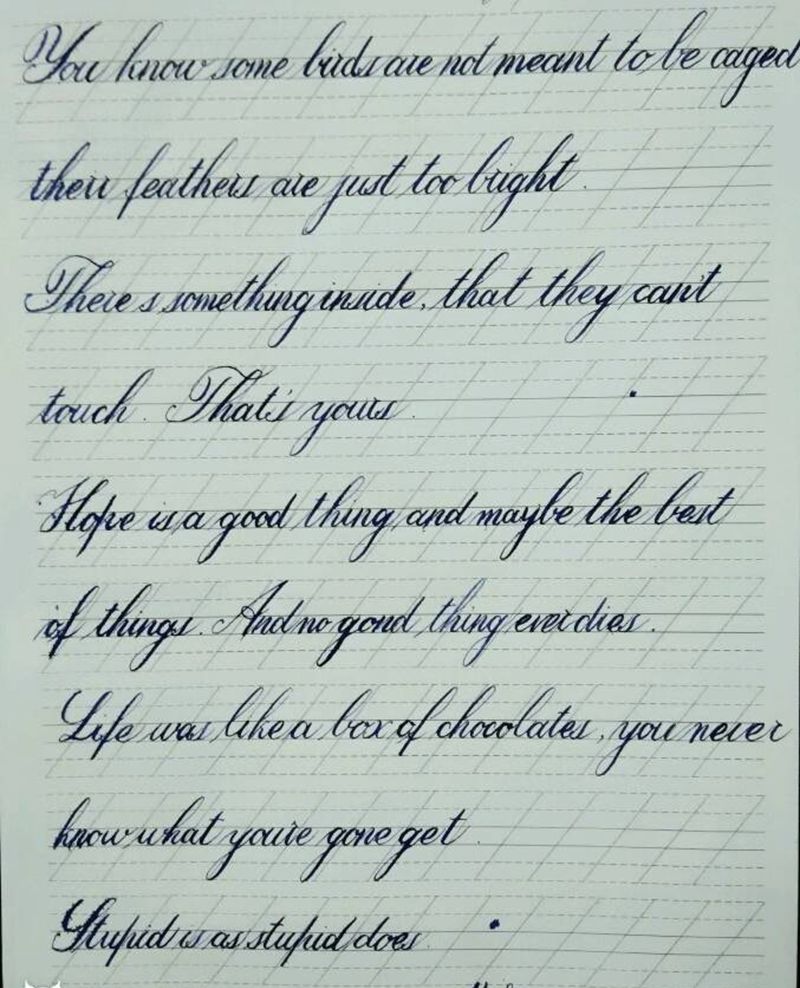 You know some birds are not meant to be caged
their feathers are just too bright.
There's something inside, that they can't
touch. That's yours.
Hope is a good thing and maybe the best
of things. And no good thing ever dies.
Life was like a box of chocolates, you never
know what you're gone get.
Stupid is as stupid does.